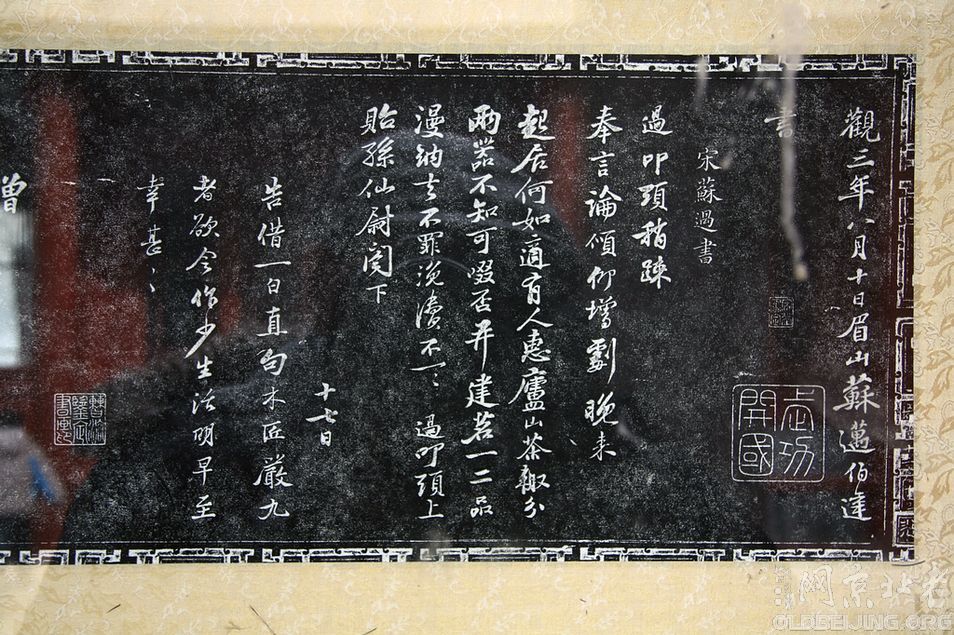 觀三年八月十日眉山蘇邁伯達
書
宋蘇過書
過叩頭稍疎
奉言論傾仰增劇晚来
起居何如適有人惠廬山茶輙分
兩器不知可啜否并建茗一二品
漫納去不罪浼瀆不一〻過叩頭上
貽孫仙尉閤下
十七日
告借一白直呴木匠嚴九
者欲令作少生活明早至
幸甚〻
曾
武功
開國
老北京网
OLDBEIJING.ORG